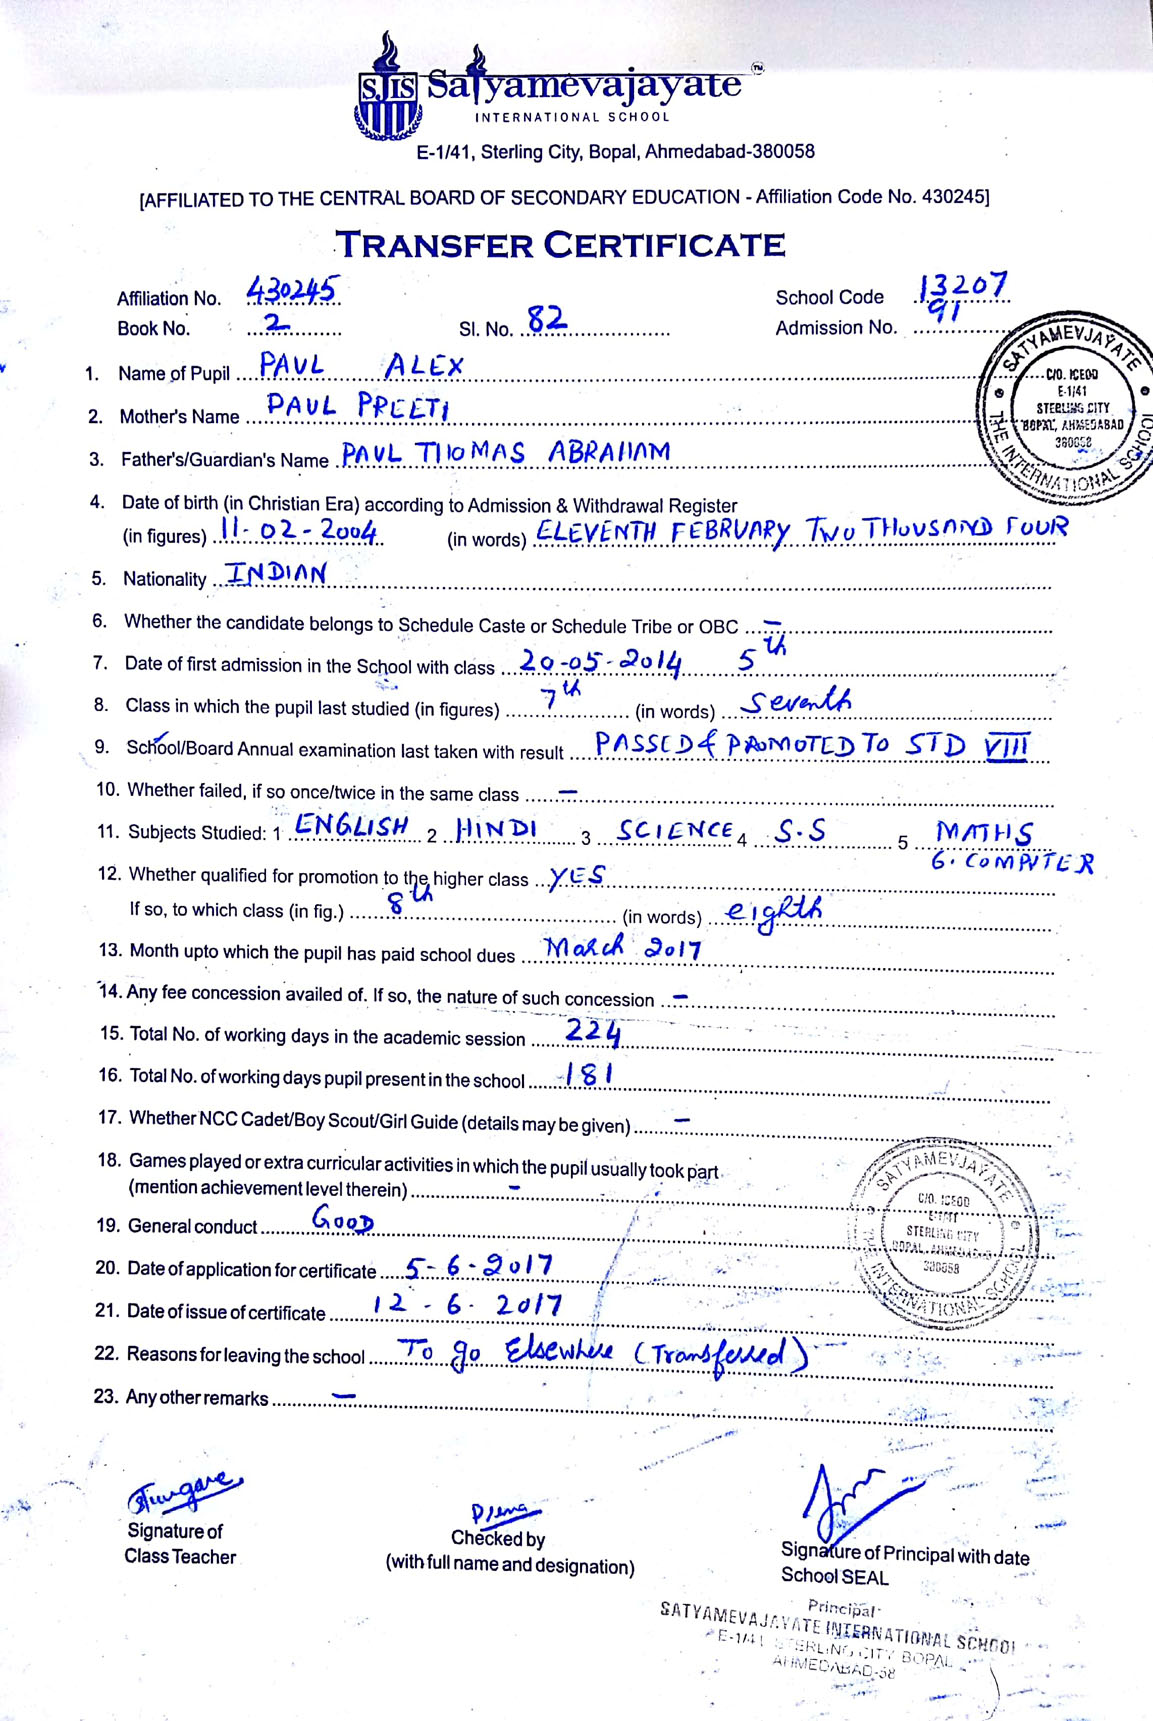 SJIS Satyamevajayate TM
INTERNATIONAL SCHOOL
E-1/41, Sterling City, Bopal, Ahmedabad-380058
[AFFILIATED TO THE CENTRAL BOARD OF SECONDARY EDUCATION - Affiliation Code No. 430245]
TRANSFER CERTIFICATE
Affiliation No. 430245 School Code 13207
Book No. : 2 Sl. No. 82 Admission No. 91
SATYAMEVJAYATE THE INTERNATIONAL SCHOOL
C/O. ICEOD
E-1/41
STERLING CITY
BOPAL, AHMEDABAD
380058
1. Name of Pupil PAUL ALEX
2. Mother's Name PAUL PREETI
3. Father's/Guardian's Name PAUL THOMAS ABRAHAM
4. Date of birth (in Christian Era) according to Admission & Withdrawal Register
(in figures) 11-02-2004 (in words) ELEVENTH FEBRUARY TWO THOUSAND FOUR
5. Nationality INDIAN
6. Whether the candidate belongs to Schedule Caste or Schedule Tribe or OBC –
7. Date of first admission in the School with class 20-05-2014 5th
8. Class in which the pupil last studied (in figures) 7th (in words) Seventh
9. School/Board Annual examination last taken with result PASSED & PROMOTED TO STD VIII
10. Whether failed, if so once/twice in the same class –
11. Subjects Studied: 1 ENGLISH 2 HINDI 3 SCIENCE 4 S.S 5 MATHS
6. COMPUTER
12. Whether qualified for promotion to the higher class YES
If so, to which class (in fig.) 8th (in words) eighth
13. Month upto which the pupil has paid school dues March 2017
14. Any fee concession availed of. If so, the nature of such concession –
15. Total No. of working days in the academic session 224
16. Total No. of working days pupil present in the school 181
17. Whether NCC Cadet/Boy Scout/Girl Guide (details may be given) –
18. Games played or extra curricular activities in which the pupil usually took part
(mention achievement level therein) –
SATYAMEVJAYATE THE INTERNATIONAL SCHOOL
C/O. ICEOD
E-1/41
STERLING CITY
BOPAL, AHMEDABAD
380058
19. General conduct GOOD
20. Date of application for certificate 5-6-2017
21. Date of issue of certificate 12-6-2017
22. Reasons for leaving the school To go Elsewhere (Transferred)
23. Any other remarks –
Signature of
Class Teacher
Checked by
(with full name and designation)
Signature of Principal with date
School SEAL
Principal
SATYAMEVAJAYATE INTERNATIONAL SCHOOL
E-1/41 STERLING CITY BOPAL
AHMEDABAD-58